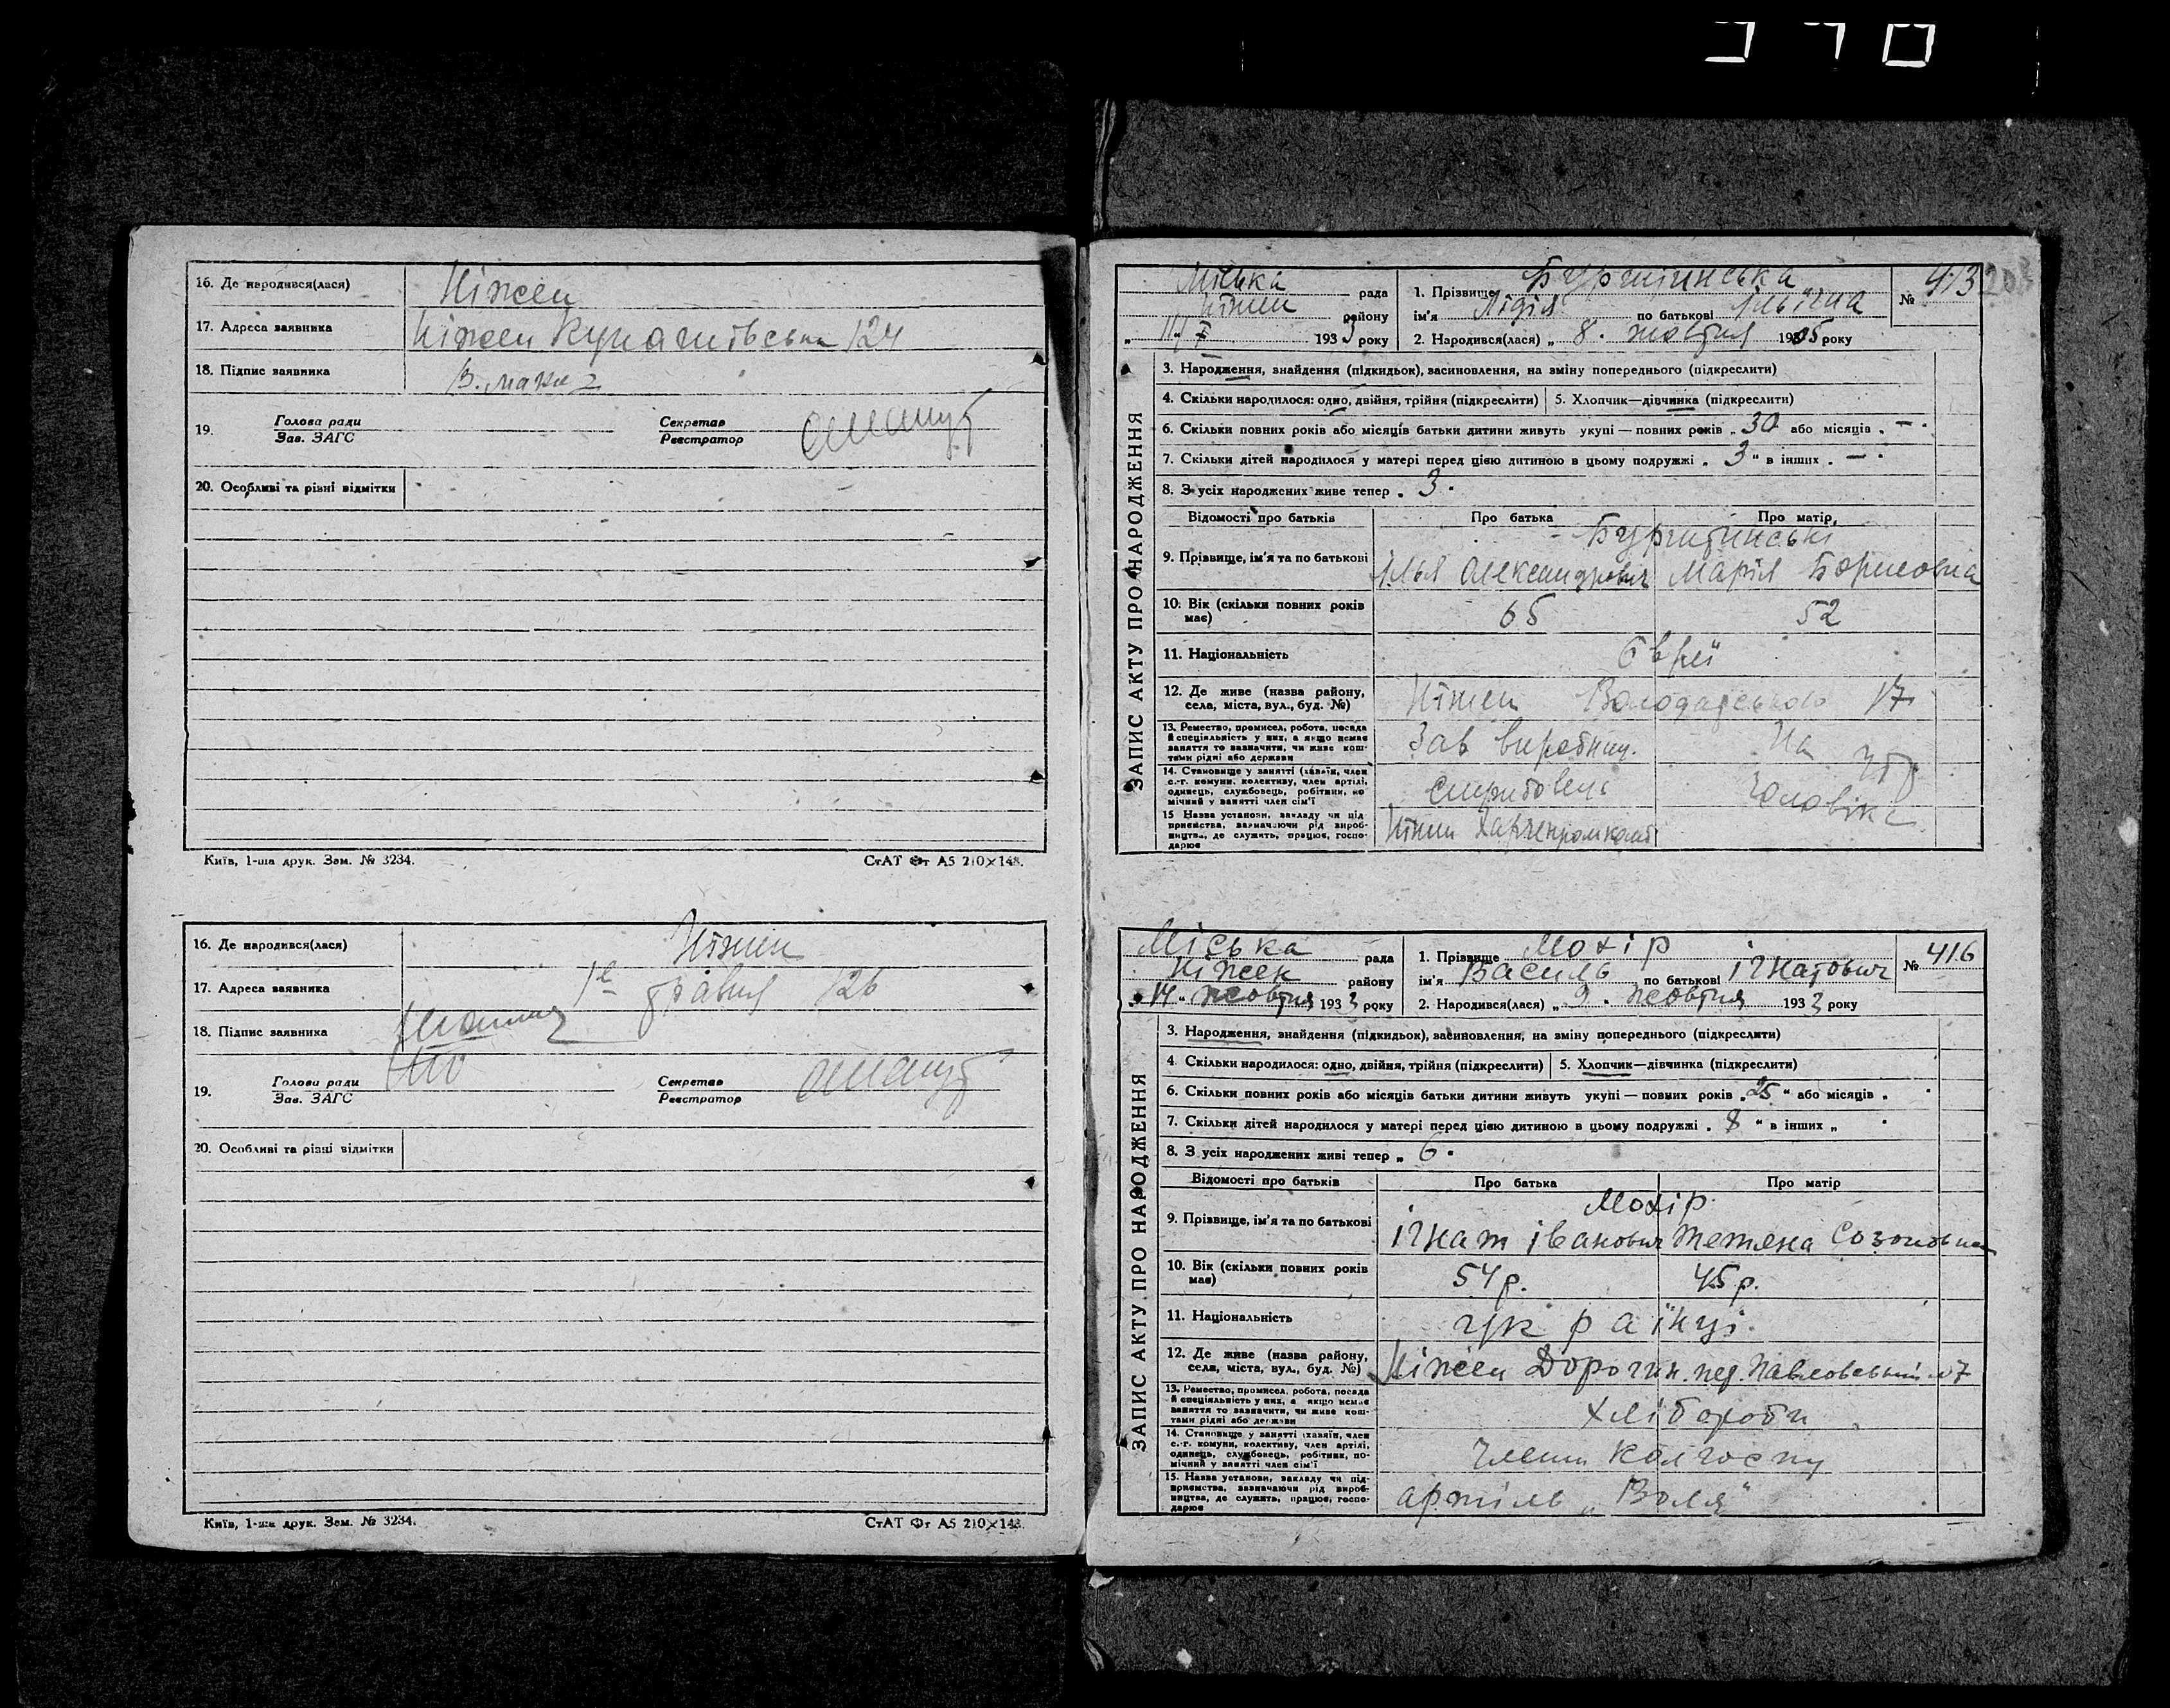 16. Де народився(лася) Ніжен
17. Адреса заявника Ніжен Кунашівська 124
18. Підпис заявника
19. Голова ради Секретар
Зав. ЗАГС Реєстратор
20. Особливі та різні відмітки
Київ, 1-ша друк. Зам. № 3234. СтАТ Фт А5 210×148.
16. Де народився(лася) Ніжен
17. Адреса заявника 1е травня 126
18. Підпис заявника
19. Голова ради Секретар
Зав. ЗАГС Реєстратор
20. Особливі та різні відмітки
Київ, 1-ша друк. Зам. № 3234. СтАТ Фт А5 210×148.
ЗАПИС АКТУ ПРО НАРОДЖЕННЯ
Міська рада 1. Прізвище № 413
Ніжен району ім'я Лідія по батькові Ільїчна
1933 року 2. Народився(лася) „ 8 . жовтня 1905 року
3. Народження, знайдення (підкидьок), засиновлення, на зміну попереднього (підкреслити)
4. Скільки народилося: одно, двійня, трійня (підкреслити) 5. Хлопчик—дівчинка (підкреслити)
6. Скільки повних років або місяців батьки дитини живуть укупі — повних років „ 30 або місяців „ — "
7. Скільки дітей народилося у матері перед цією дитиною в цьому подружжі „ 3 " в інших „ — "
8. З усіх народжених живе тепер „ 3 "
Відомості про батьків Про батька Про матір
9. Прізвище, ім'я та по батькові
Ілья Олександрович Марія Борисовна
10. Вік (скільки повних років має) 65 52
11. Національність Євреї
12. Де живе (назва району, села, міста, вул., буд. №) Ніжен Володарського 17
13. Ремество, промисел, робота, посада й спеціяльність у них, а якщо немає заняття то зазначити, чи живе коштами рідні або держави Зав виробниц. На утр
14. Становище у занятті (хазяїн, член с.-г. комуни, колективу, член артілі, одинець, службовець, робітник, помічний у занятті член сім'ї Службовець чоловіка
15 Назва установи, закладу чи підприємства, зазначаючи рід виробництва, де служить, працює, господарює Ніжен Харчепромкомб
ЗАПИС АКТУ ПРО НАРОДЖЕННЯ
Міська рада 1. Прізвище Мохір № 416
Ніжен району ім'я Василь по батькові Ігнатович
„ 14 " жовтня 1933 року 2. Народився(лася) „ 9 . жовтня 1933 року
3. Народження, знайдення (підкидьок), засиновлення, на зміну попереднього (підкреслити)
4. Скільки народилося: одно, двійня, трійня (підкреслити) 5. Хлопчик—дівчинка (підкреслити)
6. Скільки повних років або місяців батьки дитини живуть укупі — повних років „ 25 " або місяців „ "
7. Скільки дітей народилося у матері перед цією дитиною в цьому подружжі „ 8 " в інших „ "
8. З усіх народжених живі тепер „ 6 "
Відомості про батьків Про батька Про матір
Мохір
9. Прізвище, ім'я та по батькові Ігнат Іванович Тетяна Созоновна
10. Вік (скільки повних років має) 54 р. 45 р.
11. Національність українці
12. Де живе (назва району, села, міста, вул., буд. №) Ніжен Дорогин. пер. Павловський №7
13. Ремество, промисел, робота, посада й спеціяльність у них, а якщо немає заняття то зазначити, чи живе коштами рідні або держави хлібороби
14. Становище у занятті (хазяїн, член с.-г. комуни, колективу, член артілі, одинець, службовець, робітник, помічний у занятті член сім'ї члени колгоспу
15. Назва установи, закладу чи підприємства, зазначаючи рід виробництва, де служить, працює, господарює артіль „Воля"